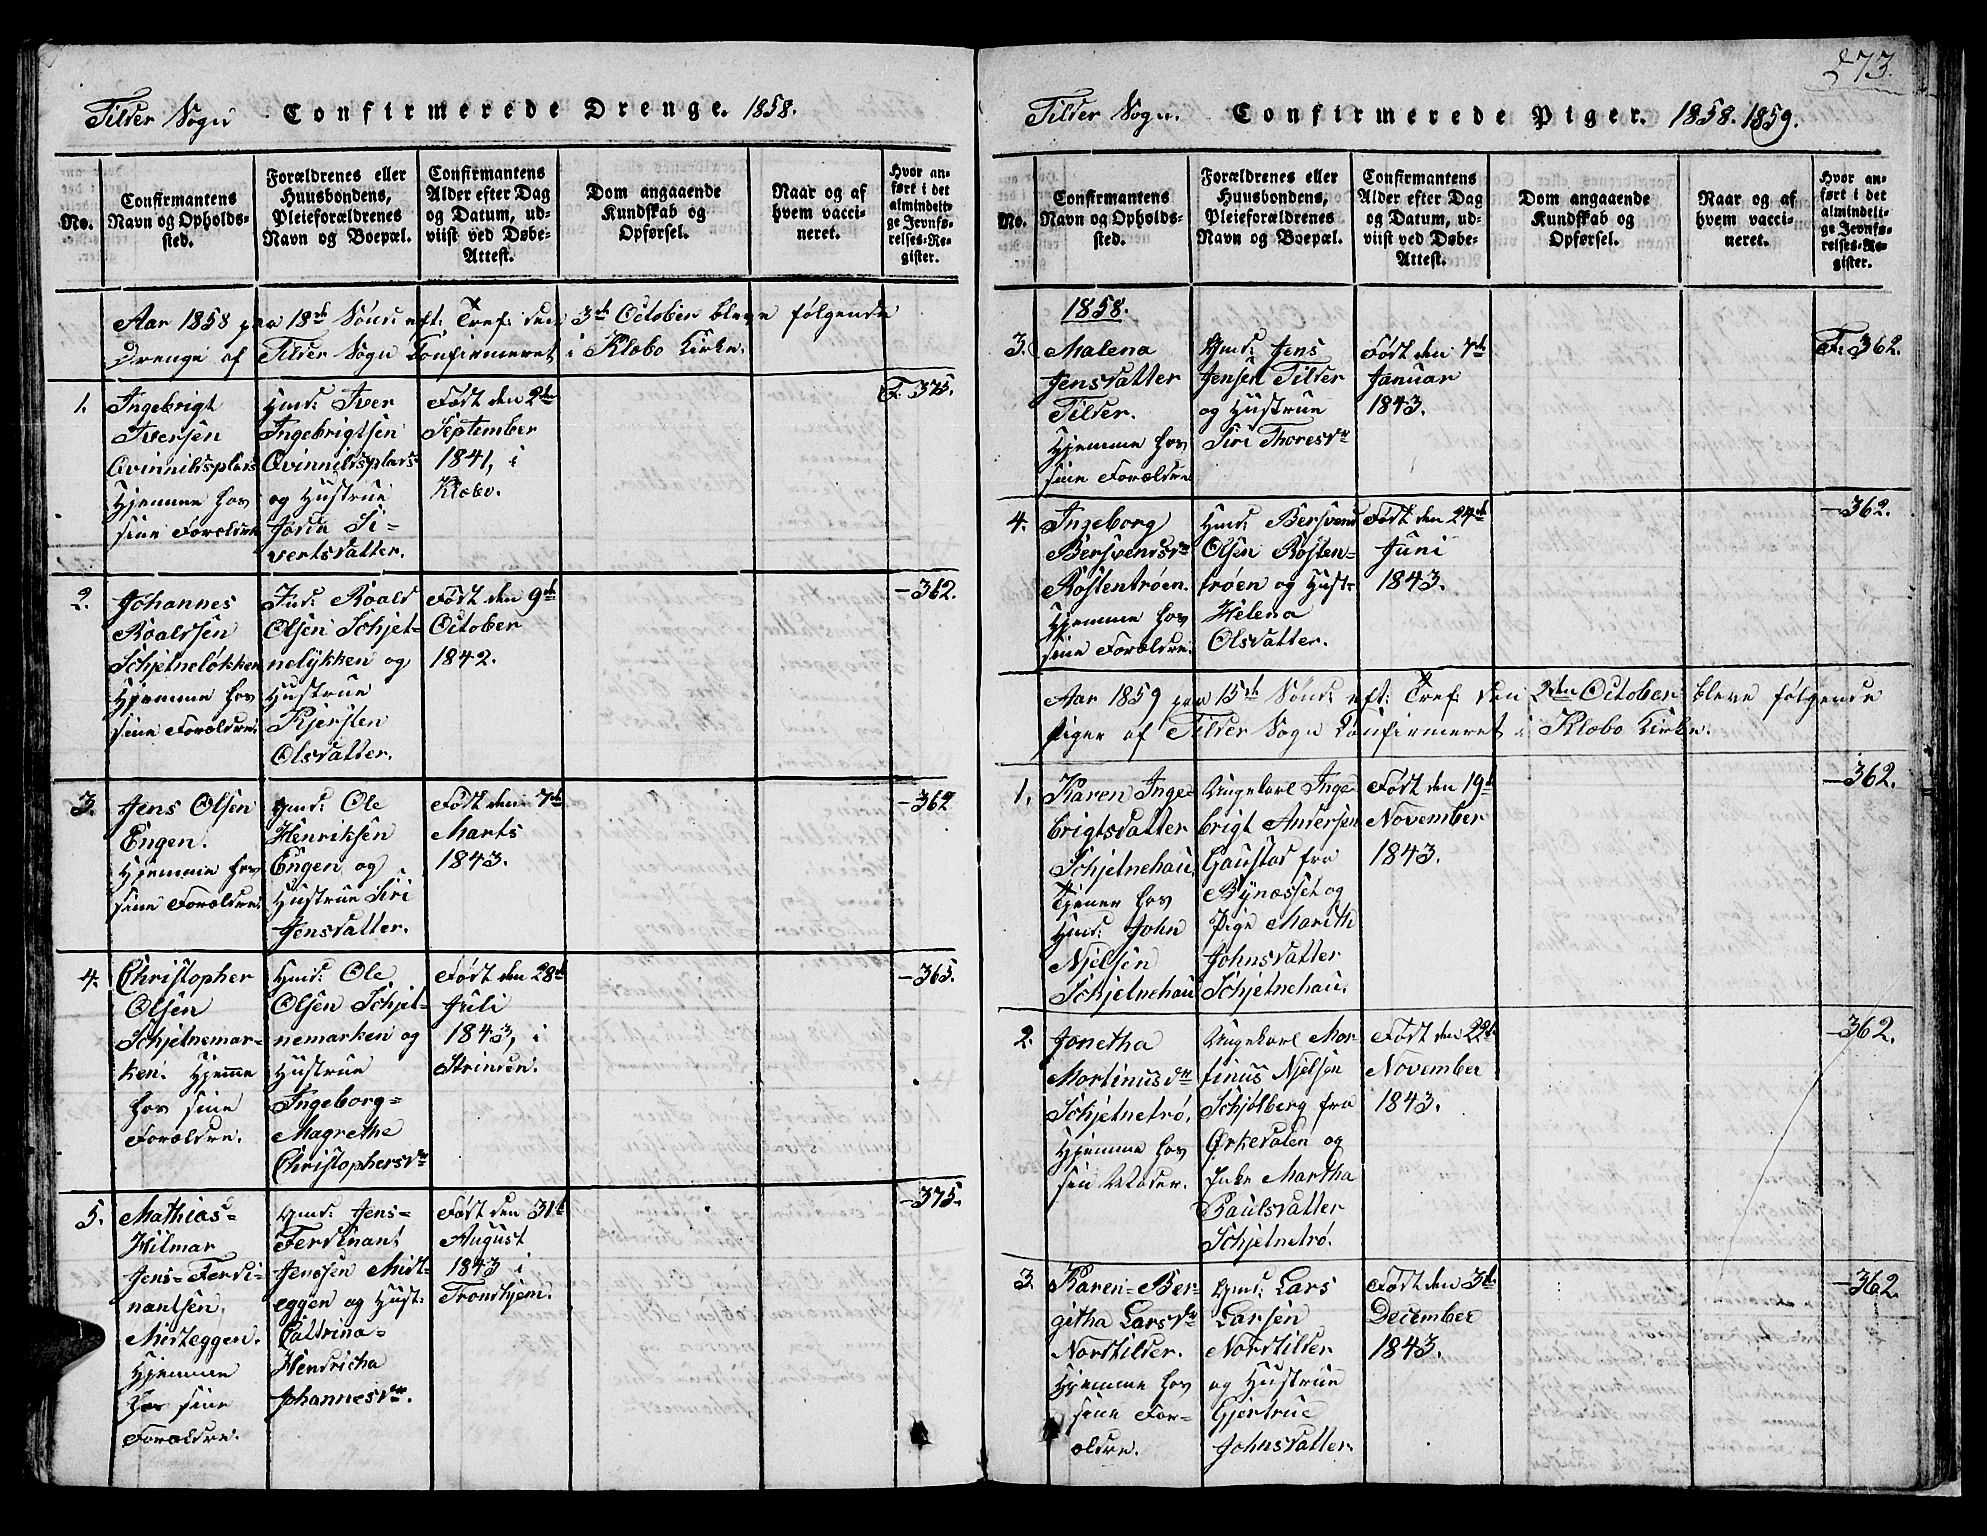 Tilder Sogn Confirmerede Drenge. 1858.
No.
Confirmantens
Navn og Opholds-
sted.
Forældrenes eller
Huusbondens,
Pleieforældrenes
Navn og Boepæl.
Confirmantens
Alder efter Dag
og Datum, ud-
viist ved Døbe-
Attest.
Dom angaaende
Kundskab og
Opførsel.
Naar og af
hvem vacci-
neret.
Hvor an-
ført i det
almindeli-
ge Jevnfø-
relses-Re-
gister.
Aar 1858 paa 18de Sønd: eft: Tref: den 3de October bleve følgende
Drenge af Tilder Sogn Confirmeret i Klæbo Kirke.
1.
Ingebrigt
Iversen
Qvinnildsplads
Hjemme hos
sine Forældre
Hmd: Iver
Ingebrigtsen
Qvinnildsplads
og Hustrue
Jorde Si-
vertsdatter.
Født den 2den
September
1841, i
Klæbo.
F. 375.
2.
Johannes
Roaldsen
Schjetneløkken
Hjemme hos
sine Forældre.
Ind: Roald
Olsen Schjet-
neløkken og
Hustrue
Kjersten
Olsdatter.
Født den 9de
October
1842.
- 362.
3.
Jens Olsen
Engen.
Hjemme hos
sine Forældre.
Gmd: Ole
Henriksen
Engen og
Hustrue Siri
Jensdatter.
Født den 7de
Marts
1843.
- 362
4.
Christopher
Olsen
Schjetnemar-
ken. Hjemme
hos sine
Forældre.
Hmd: Ole
Olsen Schjet-
nemarken og
Hustrue
Ingeborg-
Magrethe
Christophersdr
Født den 28de
Juli
1843, i
Strinden.
- 365.
5.
Mathias-
Hilmar
Jens-Ferdi-
nantsen
Midteggen.
Hjemme
hos sine
Forældre.
Gmd: Jens-
Ferdinant
Jenssen Midt-
eggen og Hust:
Cattrina-
Hendricha
Johannesdr.
Født den 31te
August
1843 i
Trondhjem.
- 375.
273.
Tilder Sogn. Confirmerede Piger. 1858. 1859.
No.
Confirmantens
Navn og Opholds-
sted.
Forældrenes eller
Huusbondens,
Pleieforældrenes
Navn og Boepæl.
Confirmantens
Alder efter Dag
og Datum, ud-
viist ved Døbe-
Attest.
Dom angaaende
Kundskab og
Opførsel.
Naar og af
hvem vacci-
neret.
Hvor an-
ført i det
almindeli-
ge Jevnfø-
relses-Re-
gister.
1858.
3.
Malena
Jensdatter
Tilder.
Hjemme hos
sine Forældre
Gmd: Jens
Jensen Tilder
og Hustrue
Siri Thoresdr
Født den 7de
Januar
1843.
F. 362.
4.
Ingeborg
Bersvendsdr
Røstentrøen.
Hjemme hos
sine Forældre.
Hmd: Bersvend
Olsen Røsten-
trøen og Hust:
Helena
Olsdatter.
Født den 24de
Juni
1843.
- 362.
Aar 1859 paa 15de Sønd: eft: Tref: den 2den October bleve følgende
Piger af Tilder Sogn Confirmeret i Klæbo Kirke.
1.
Karen Inge-
brigtsdatter
Schjetnehau,
Tjener hos
Hmd: John
Njelsen
Schjetnehau
Ungekarl Inge-
brigt Andersen
Gaustad fra
Bynæsset og
Pige Marith
Johnsdatter
Schjetnehau.
Født den 19de
November
1843.
- 362.
2.
Jonetha
Mortinusdr
Schjetnetrø.
Hjemme hos
sin Moder.
Ungekarl Mor-
tinus Njelsen
Schjølberg fra
Ørkedalen og
Enke Martha
Paulsdatter
Schjetnetrø.
Født den 22de
November
1843.
- 362.
3.
Karen-Ber-
githa Larsdr
Nordtilder.
Hjemme hos
sine For-
ældre.
Gmd: Lars
Larsen
Nordtilder
og Hustrue
Gjertrue
Johnsdatter.
Født den 3de
December
1843.
- 362.